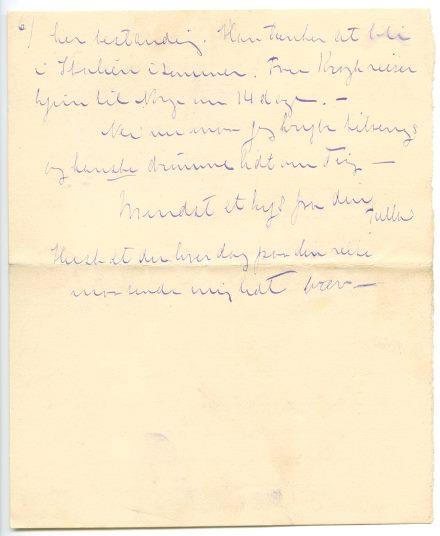 6/ her bestandig. Han tænker at bli
i Italien i sommer. Fru Krogh reiser
hjem til Norge om 14 dage. —
Nei nu maa jeg krybe tilsengs
og kanske drømme lidt om Dig —
Mindst et kys fra din
Tulla
Husk at du hver dag paa den reise
maa sende mig lidt brev —